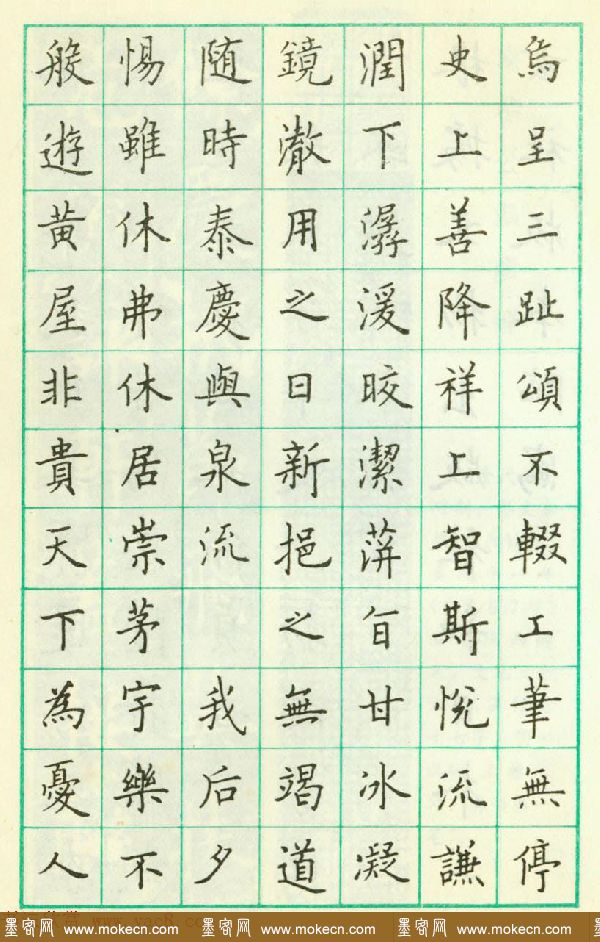 烏呈三趾頌不輟工筆無停
史上善降祥上智斯悅流謙
潤下潺湲皎潔蓱旨甘冰凝
鏡澈用之日新挹之無竭道
随時泰慶與泉流 我后夕
惕雖休弗休居崇茅宇樂不
般遊黃屋非貴天下為憂人
墨客网 www.mokecn.com 墨客网 www.mokecn.com 墨客网 www.mokecn.com